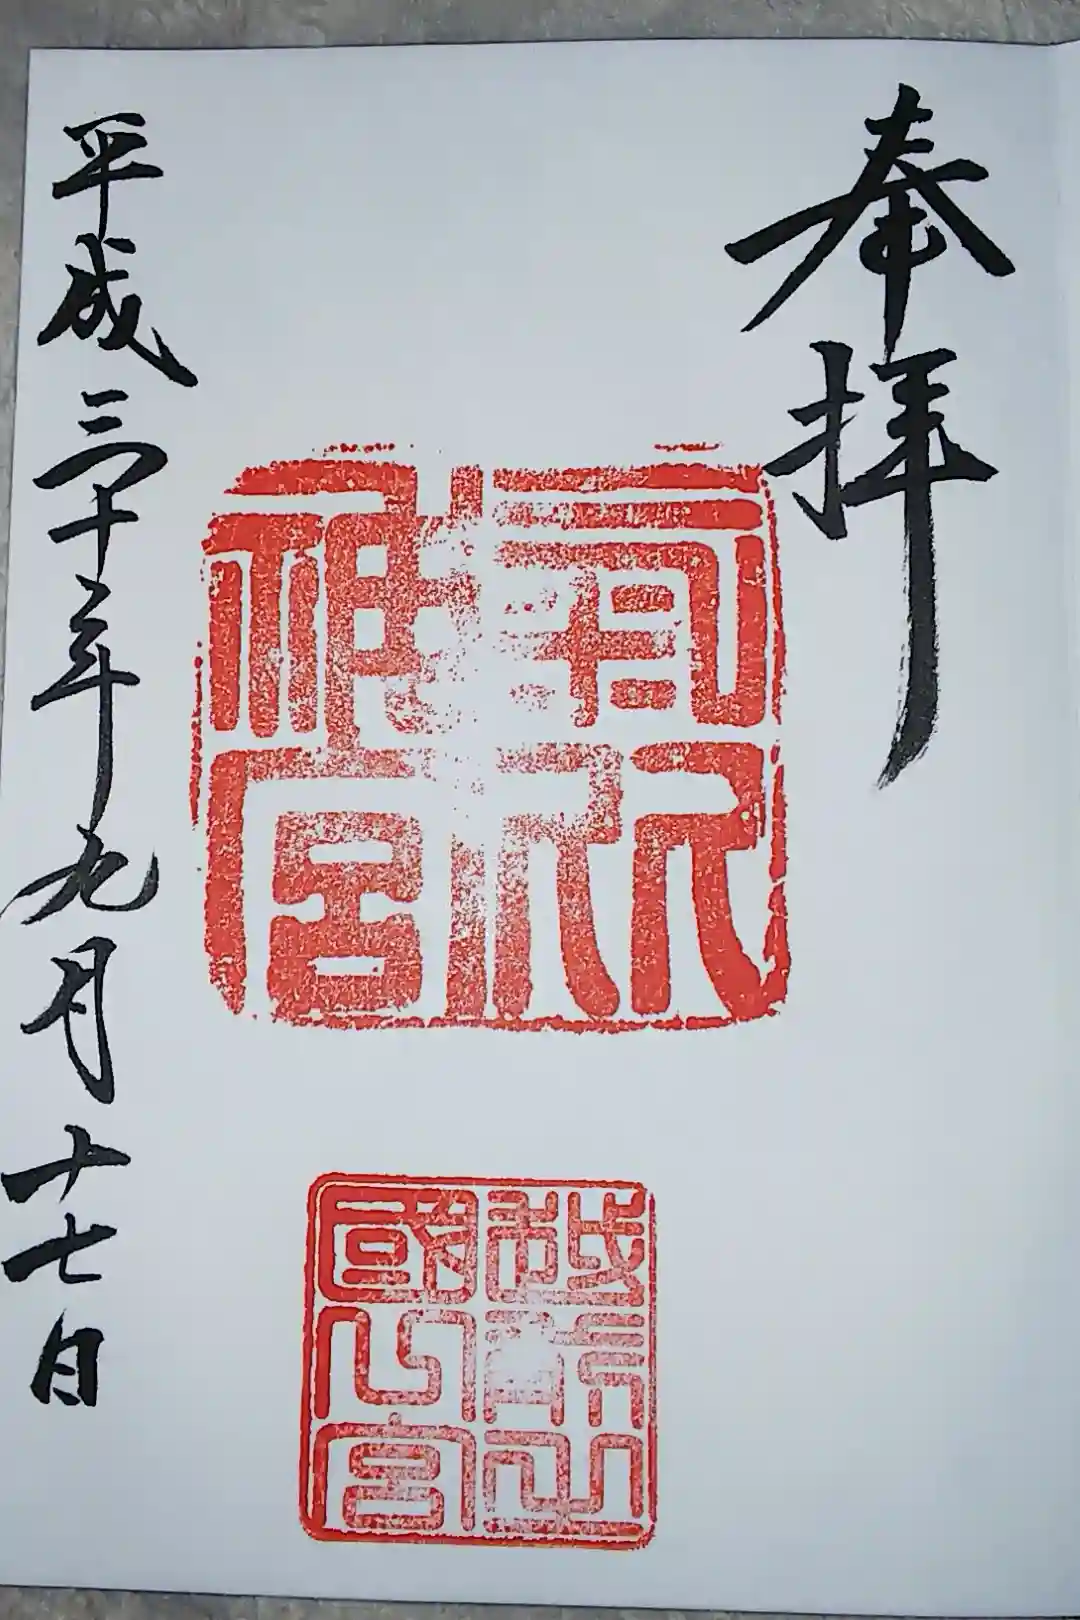 奉拝
氣比神宮
越前之
國一宮
平成三十年九月十七日